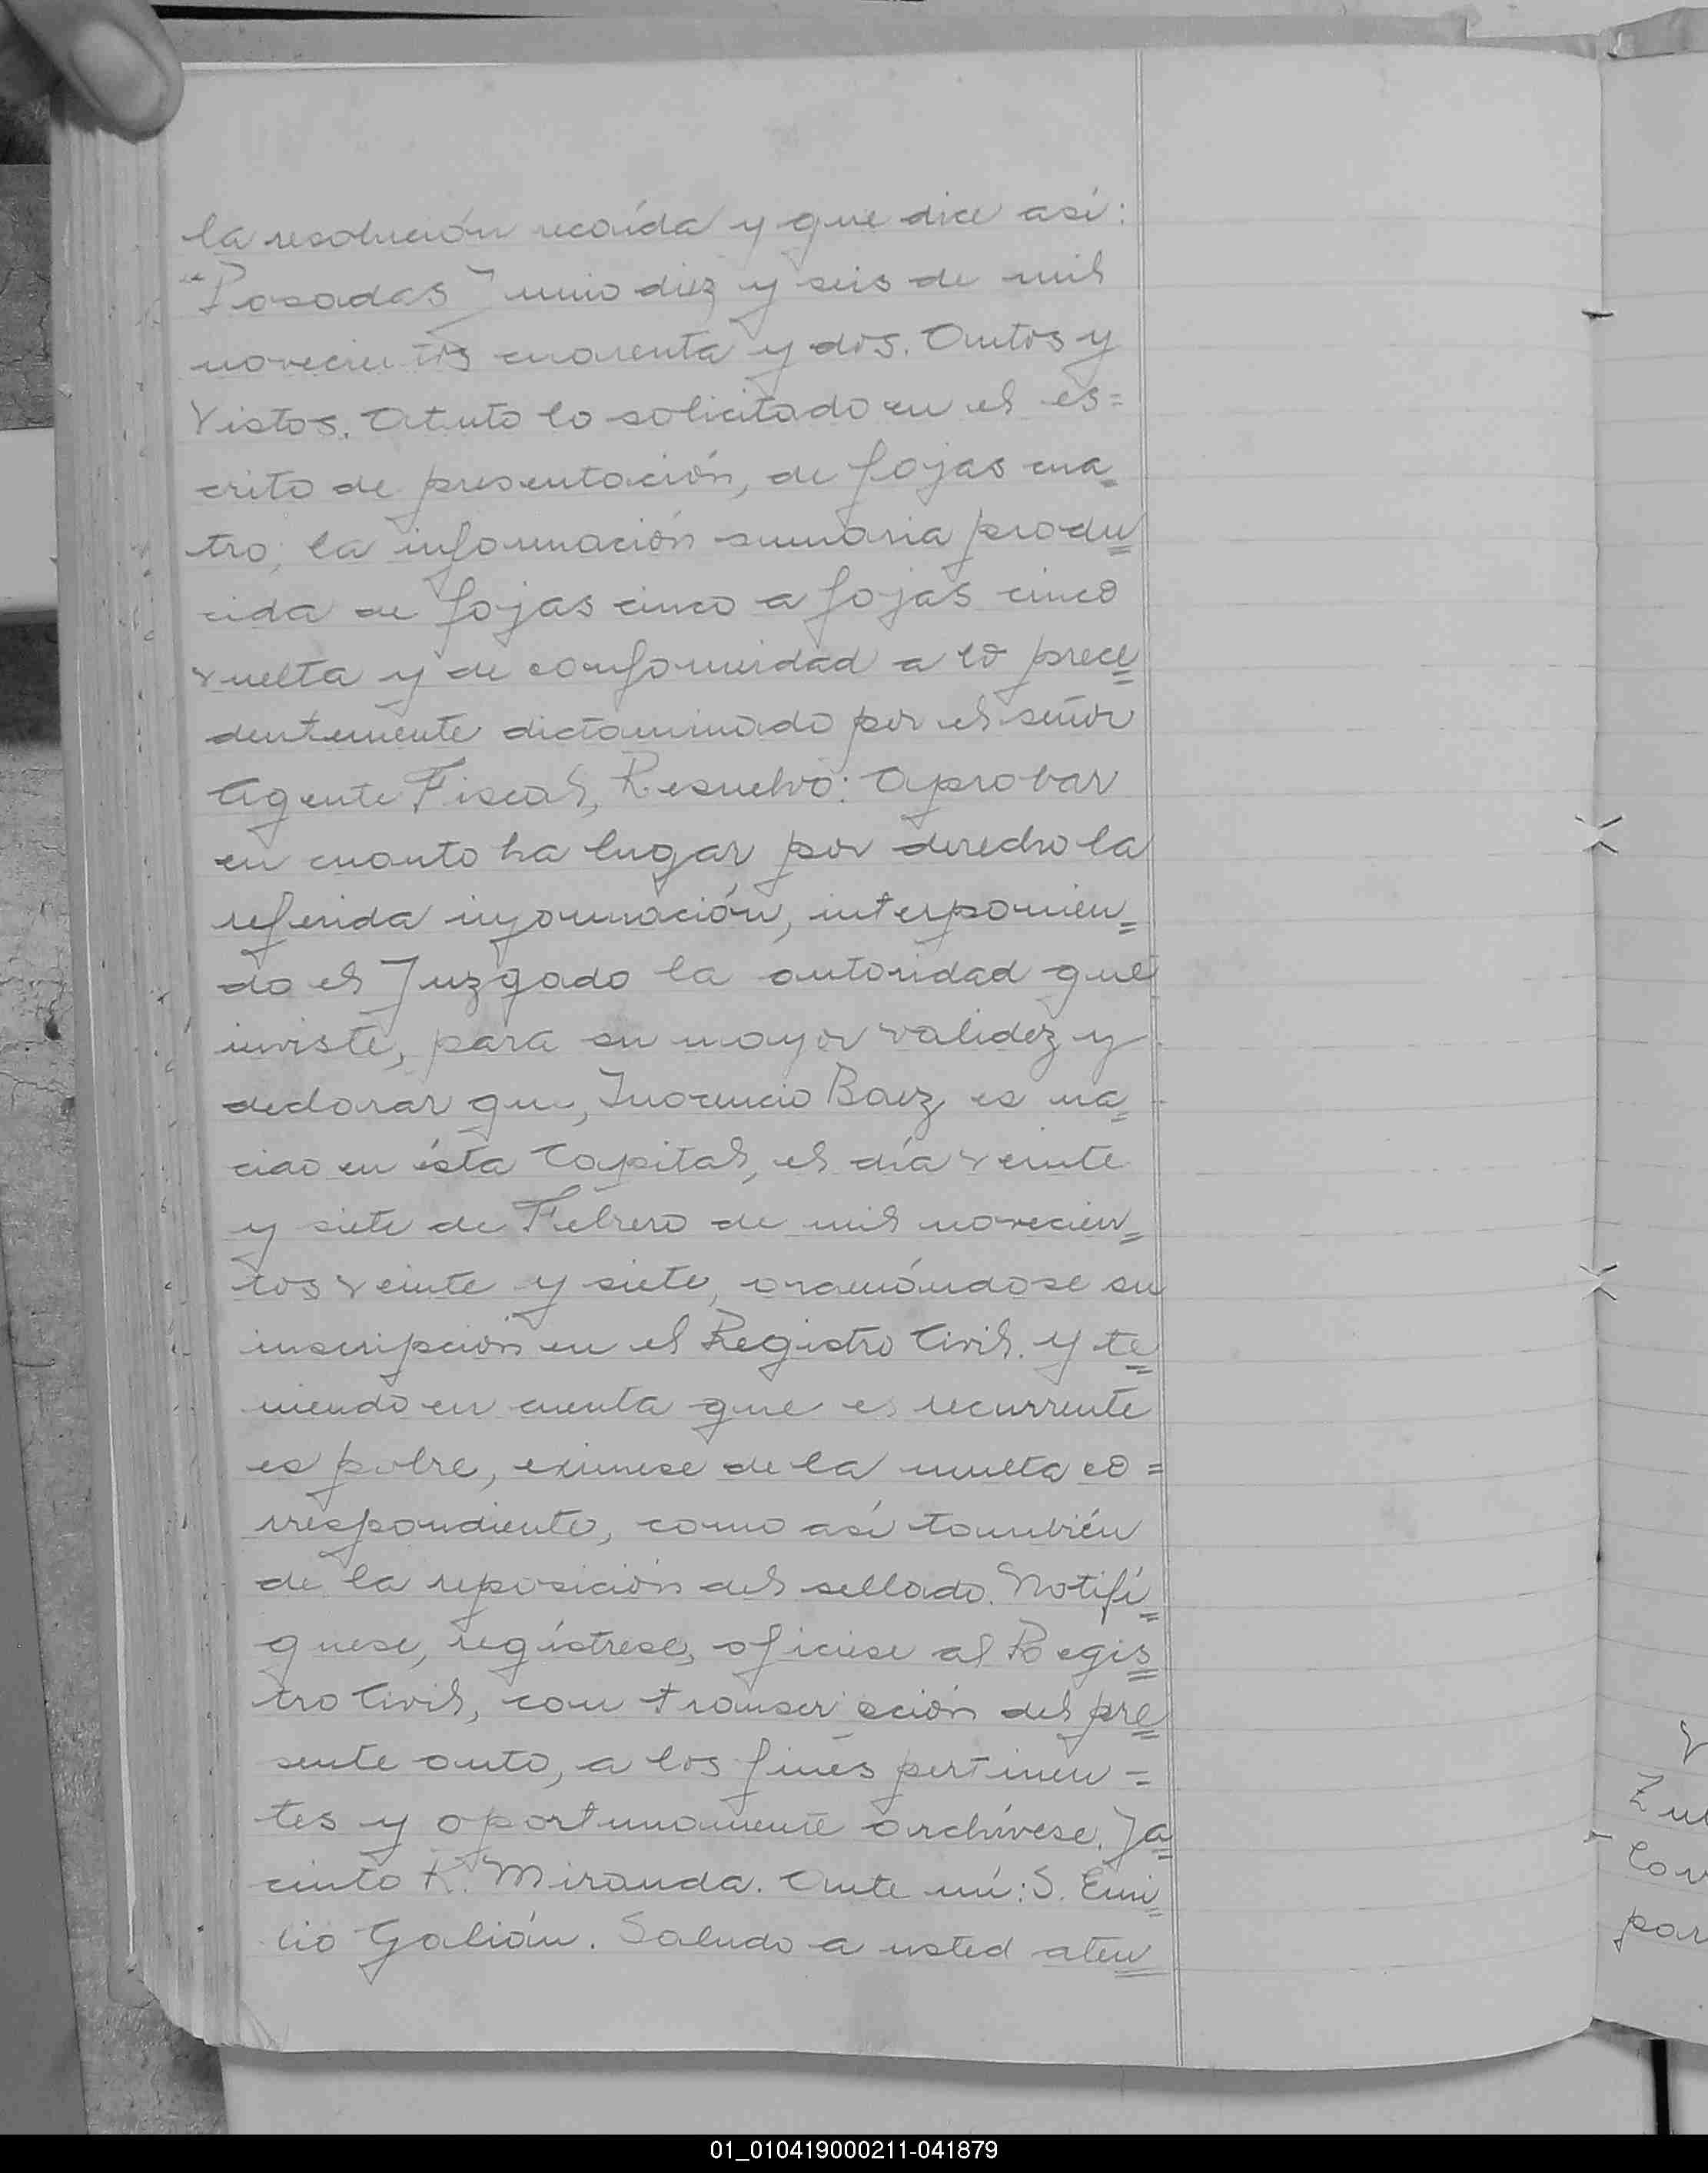 la resolución recaída y que dice así:
"Posadas Junio diez y seis de mil
novecientos cuarenta y dos. Autos y
Vistos. Atento lo solicitado en el es=
crito de presentación, de fojas cua=
tro, la información sumaria produ=
cida de fojas cinco a fojas cinco
vuelta y de conformidad a lo prece=
dentemente dictaminado por el señor
Agente Fiscal, Resuelvo: Aprobar
en cuanto ha lugar por derecho la
referida información, interponien=
do el Juzgado la autoridad que
inviste, para su mayor validez y
declarar que, Inocencio Baez es na=
cido en ésta Capital, el día veinte
y siete de Febrero de mil novecien=
tos veinte y siete, ordenándose su
inscripción en el Registro Civil. y te=
niendo en cuenta que el recurrente
es pobre, eximese de la multa co=
rrespondiente, como así también
de la reposición del sellado. Notifí=
quese, regístrese, ofíciese al Regis=
tro Civil, con transcripción del pre=
sente auto, a los fines pertinen=
tes y oportunamente archívese. Ja=
cinto R. Miranda. Ante mí: S. Emi=
lio Galián. Saludo a usted aten=
Con
par
01_010419000211-041879